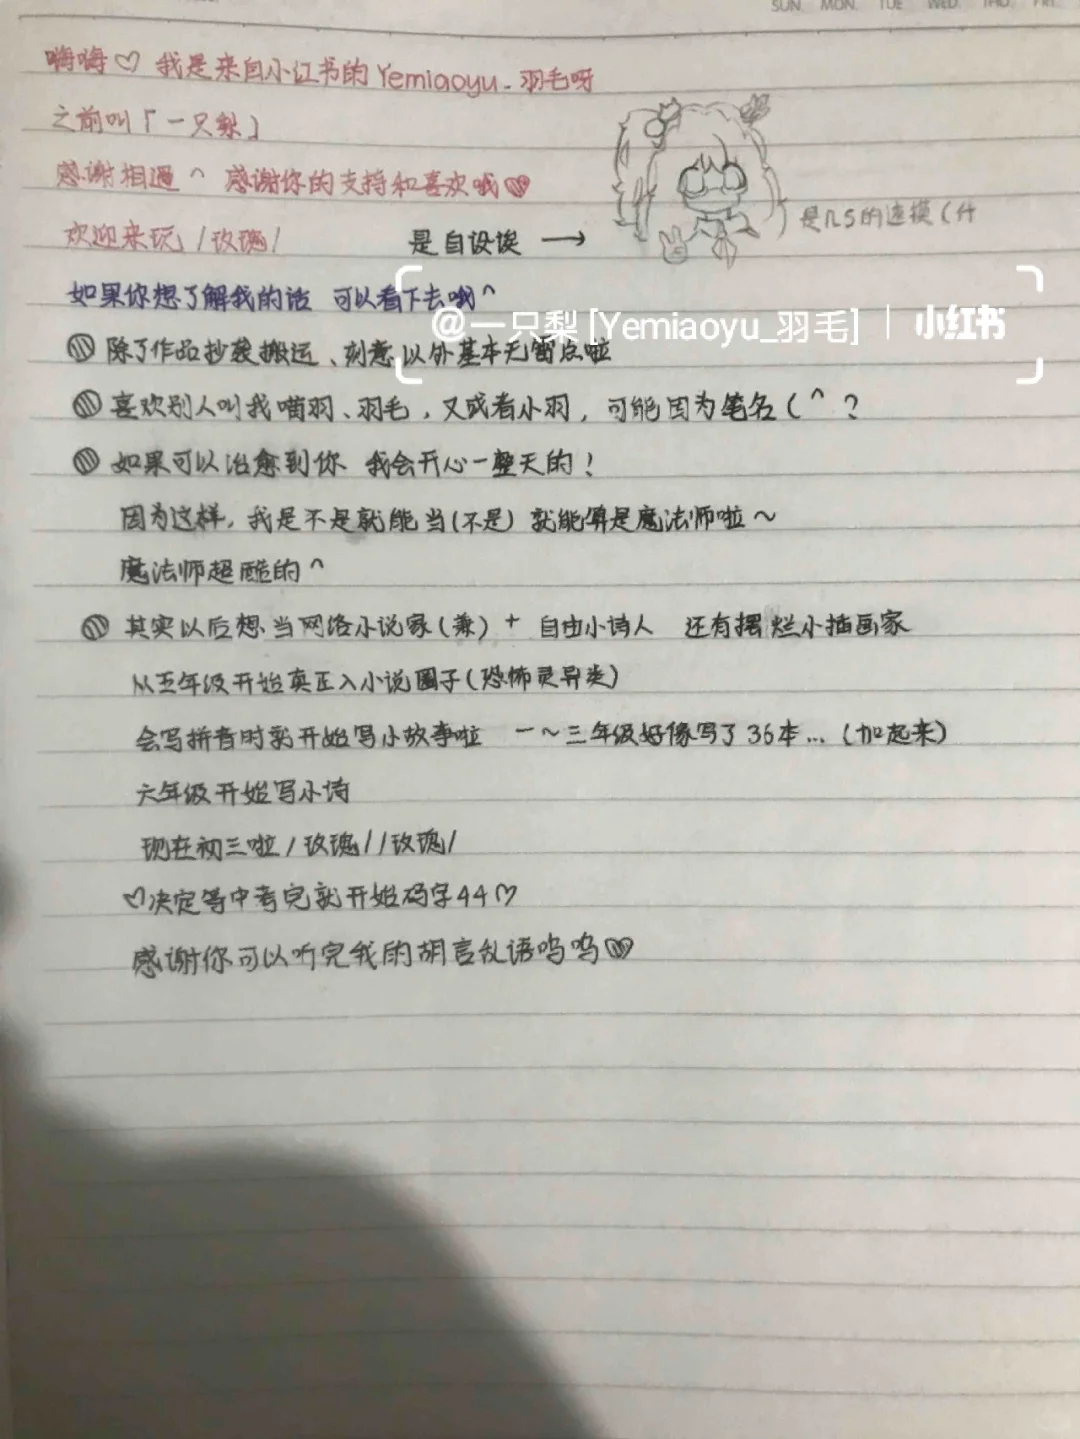 SUN. MON. TUE. WED. THU. FRI.
嗨嗨♡ 我是来自小红书的Yemiaoyu_羽毛呀
之前叫「一只梨」
感谢相遇^ 感谢你的支持和喜欢哦♡
欢迎来玩/玫瑰/
是自设诶 →
是ns的速摸(什
如果你想了解我的话 可以看下去哦^
@一只梨 [Yemiaoyu_羽毛] | 小红书
除了作品抄袭搬运、刻意以外基本无雷点啦
喜欢别人叫我喵羽、羽毛,又或者小羽,可能因为笔名(^ ?
如果可以治愈到你 我会开心一整天的!
因为这样,我是不是就能当(不是)就能算是魔法师啦~
魔法师超酷的^
其实以后想当网络小说家(兼)+ 自由小诗人 还有摆烂小插画家
从五年级开始真正入小说圈子(恐怖灵异类)
会写拼音时就开始写小故事啦 一~三年级好像写了36本...(加起来)
六年级开始写小诗
现在初三啦/玫瑰//玫瑰/
♡决定等中考完就开始码字44♡
感谢你可以听完我的胡言乱语呜呜♡